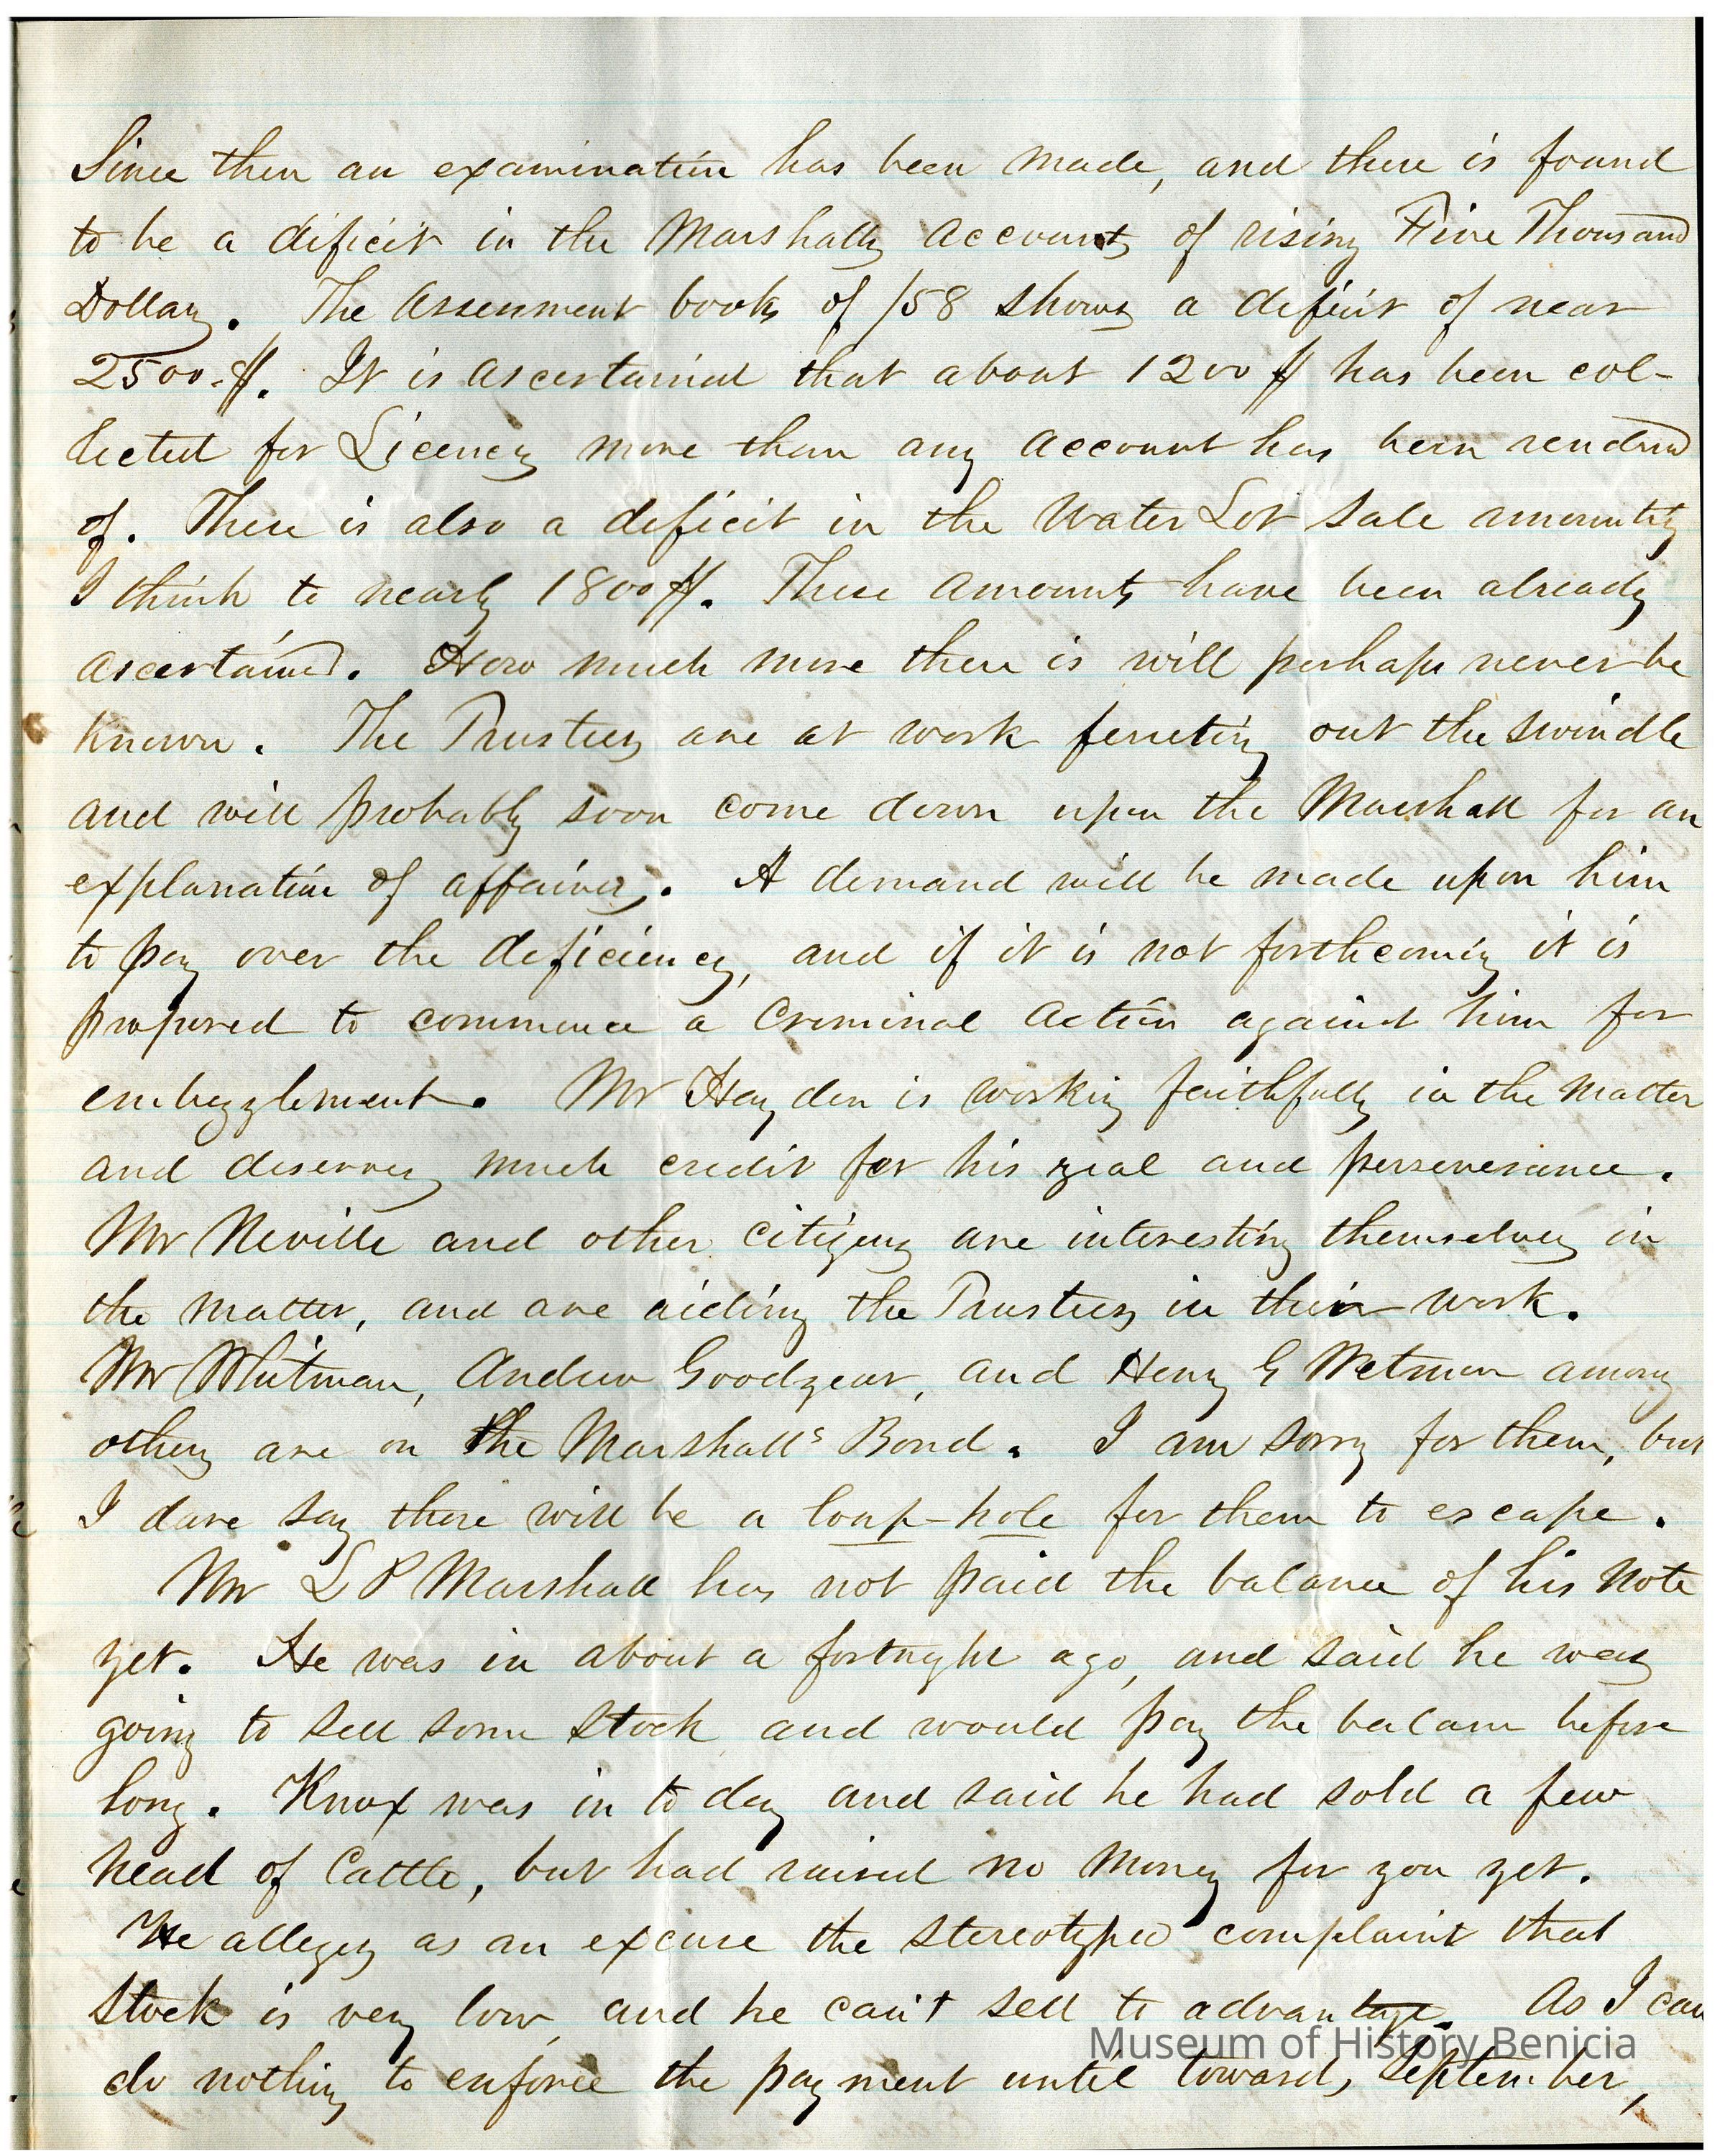 Since then an examination has been made, and there is found
to be a dificit in the Marshalls Accounts of rising Five Thousand
Dollars. The Assessment books of /58 shows a deficit of near
2500.$. It is ascertained that about 1200$ has been col-
lected for Licences more than any account has been rendered
of. There is also a deficit in the Water Lot sale amounting
I think to nearly 1800$. These amounts have been already
ascertained. How much more there is will perhaps never be
known. The Trustees are at work ferreting out the swindle
and will probably soon come down upon the Marshall for an
explanation of affairs. A demand will be made upon him
to pay over the deficiency, and if it is not forthcoming it is
proposed to commence a Criminal Action against him for
embezzlement. Mr Hayden is working faithfully in the matter
and deserves much credit for his zeal and perseverance.
Mr Neville and other citizens are interesting themselves in
the matter, and are aiding the Trustees in their work.
Mr Whitman, Andrew Goodyear, and Henry G Wetmon among
others are on the Marshall's Bond. I am sorry for them, but
I dare say there will be a loop-hole for them to escape.
Mr L P Marshall has not paid the balance of his note
yet. He was in about a fortnight ago, and said he was
going to sell some stock and would pay the balance before
long. Knox was in to day and said he had sold a few
head of Cattle, but had raised no money for you yet.
He alleges as an excuse the stereotyped complaint that
stock is very low, and he can't sell to advantage. As I can
do nothing to enforce the payment until towards September,
Museum of History Benicia